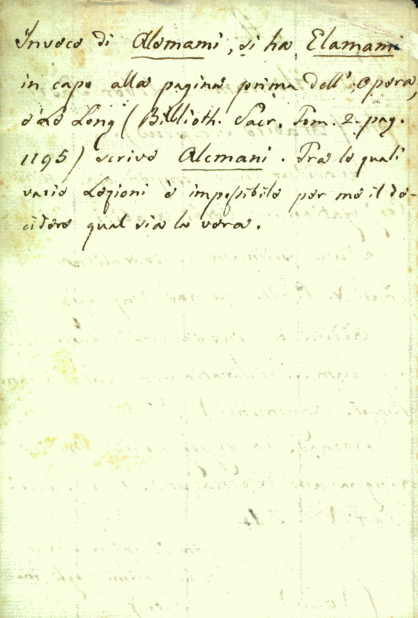 Invece di Alemami, si ha Elamami
in capo alla pagina prima dell'opera,
e Le Long (Biblioth. Sacr. Tom. 2. pag.
1195) scrive Alemani. Tra le quali
varie Lezioni è impossibile per me il de-
cidere qual sia la vera.